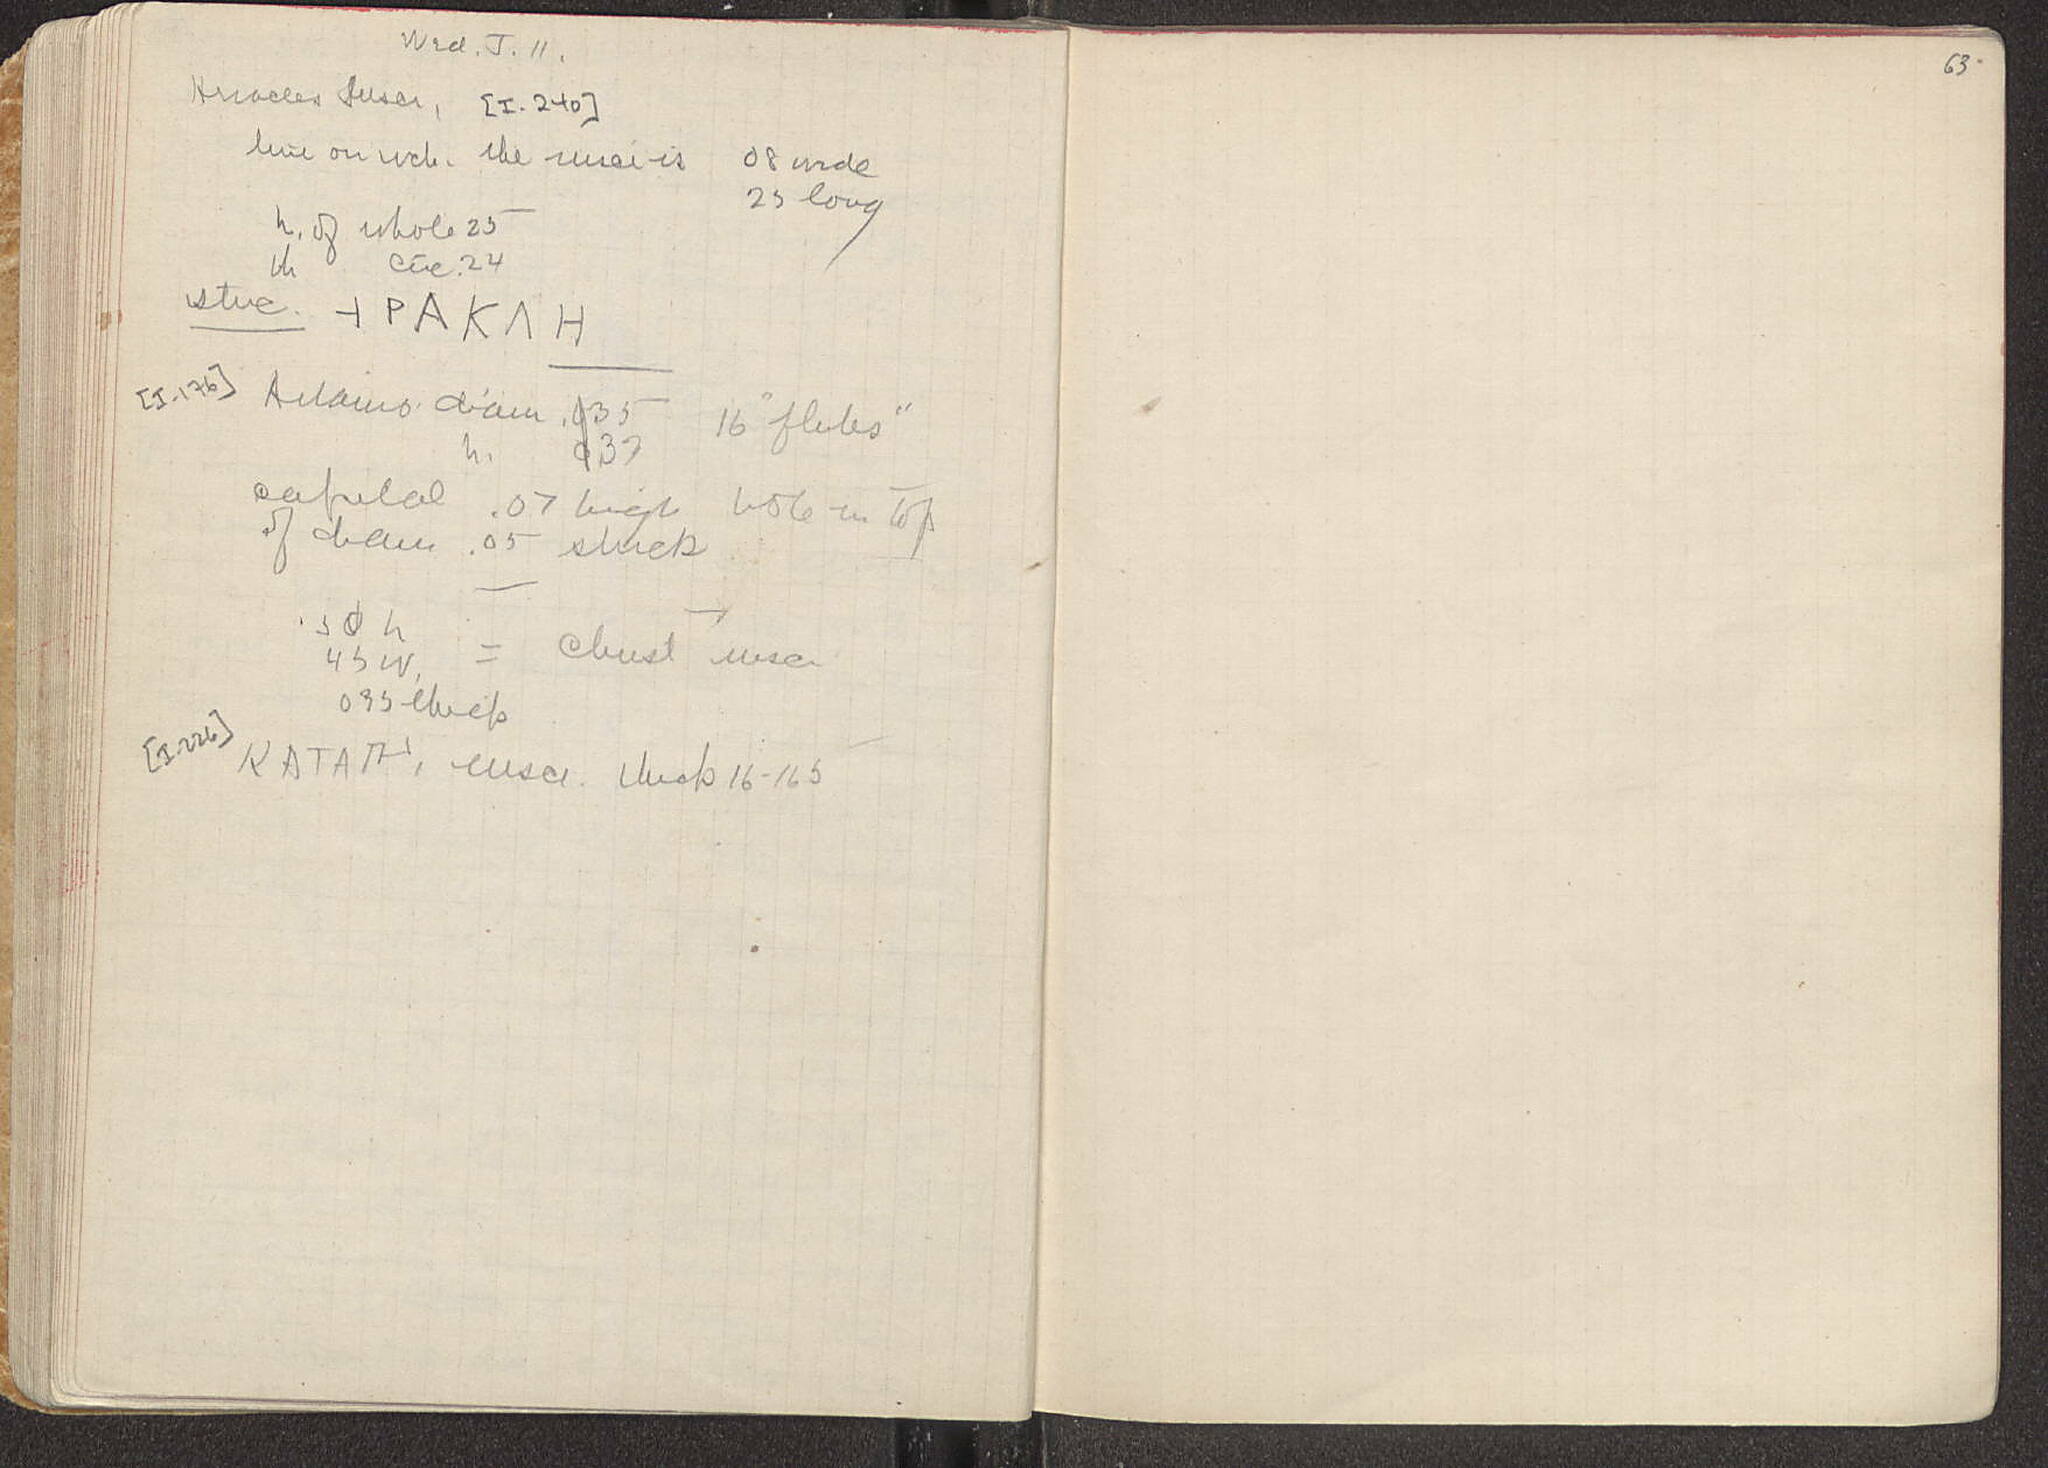 Wed. J. 11.
Heracles Inscr, [I. 240]
line on wch. the inscr is 08 wide
25 long
h. of whole 25
th circ. 24
stuc. ⊢ΡΑΚΛΗ
[I.176] diam .035 16 "flutes"
h. 037
capital .07 high hole in top
of diam .05 stuck
.50 h
45 w. = Christ inscr
035 thick
[I.226] ΚΑΤΑΠ, inscr. thick 16-165
63